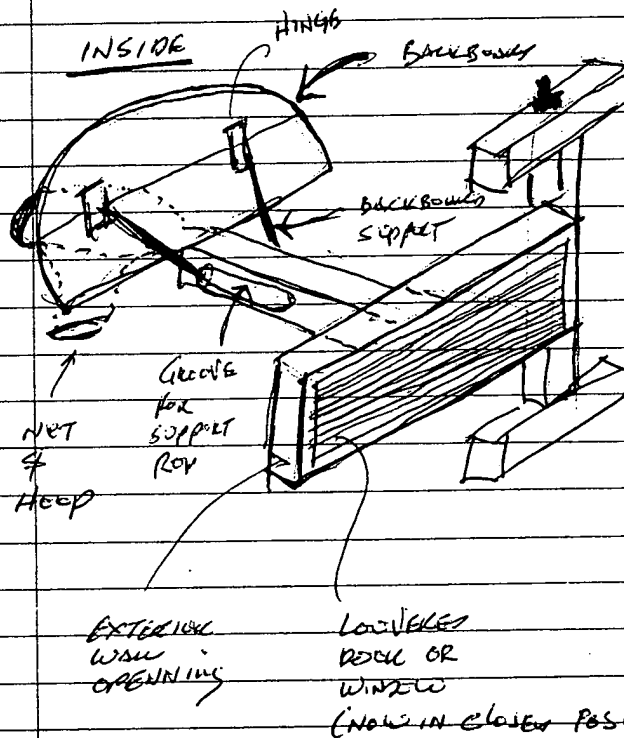 INSIDE
HINGE
BACKBOARD
BACKBOARD
SUPPORT
GROOVE
FOR
SUPPORT
ROD
NET
&
HOOP
EXTERIOR
WALL
OPENNING
LOUVERED
DOOR OR
WINDOW
(NOW IN CLOSED POS